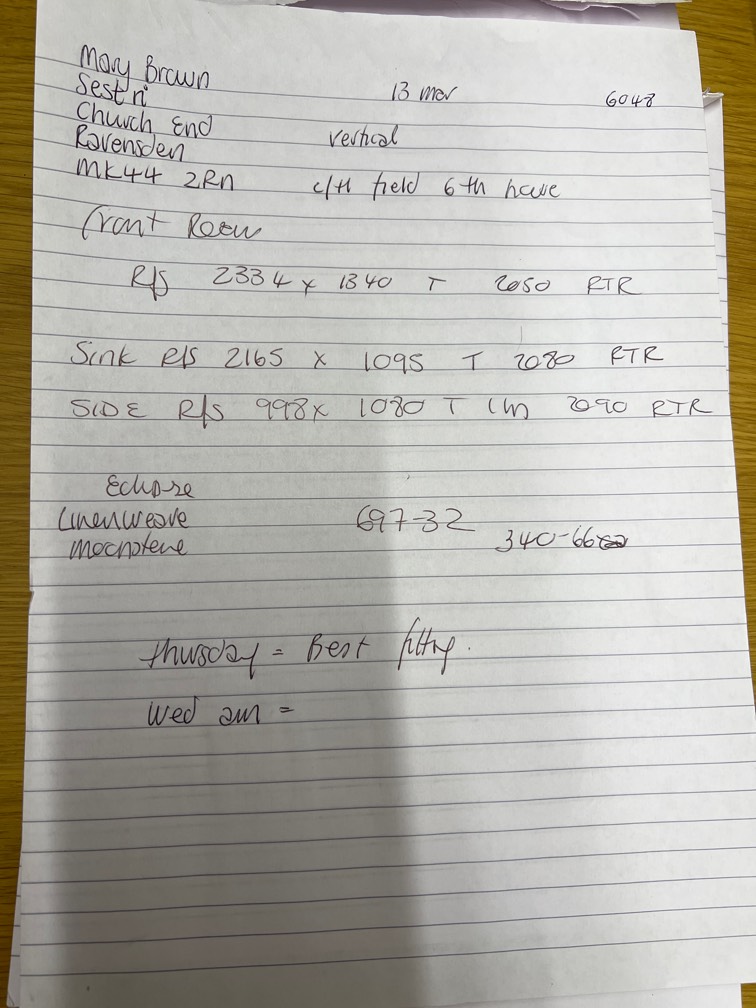 Mary Brown
Sestri
13 mar
6048
Church End
Ravensden
vertical
MK44 2RN
c/H field 6th house
Front Room
R/S 2334 x 1340 T 2050 RTR
Sink R/S 2165 x 1095 T 2080 RTR
SIDE R/S 998 x 1080 T 2090 RTR
Linenweave
697-32
340-66
thursday = Best fitting.
Wed am =